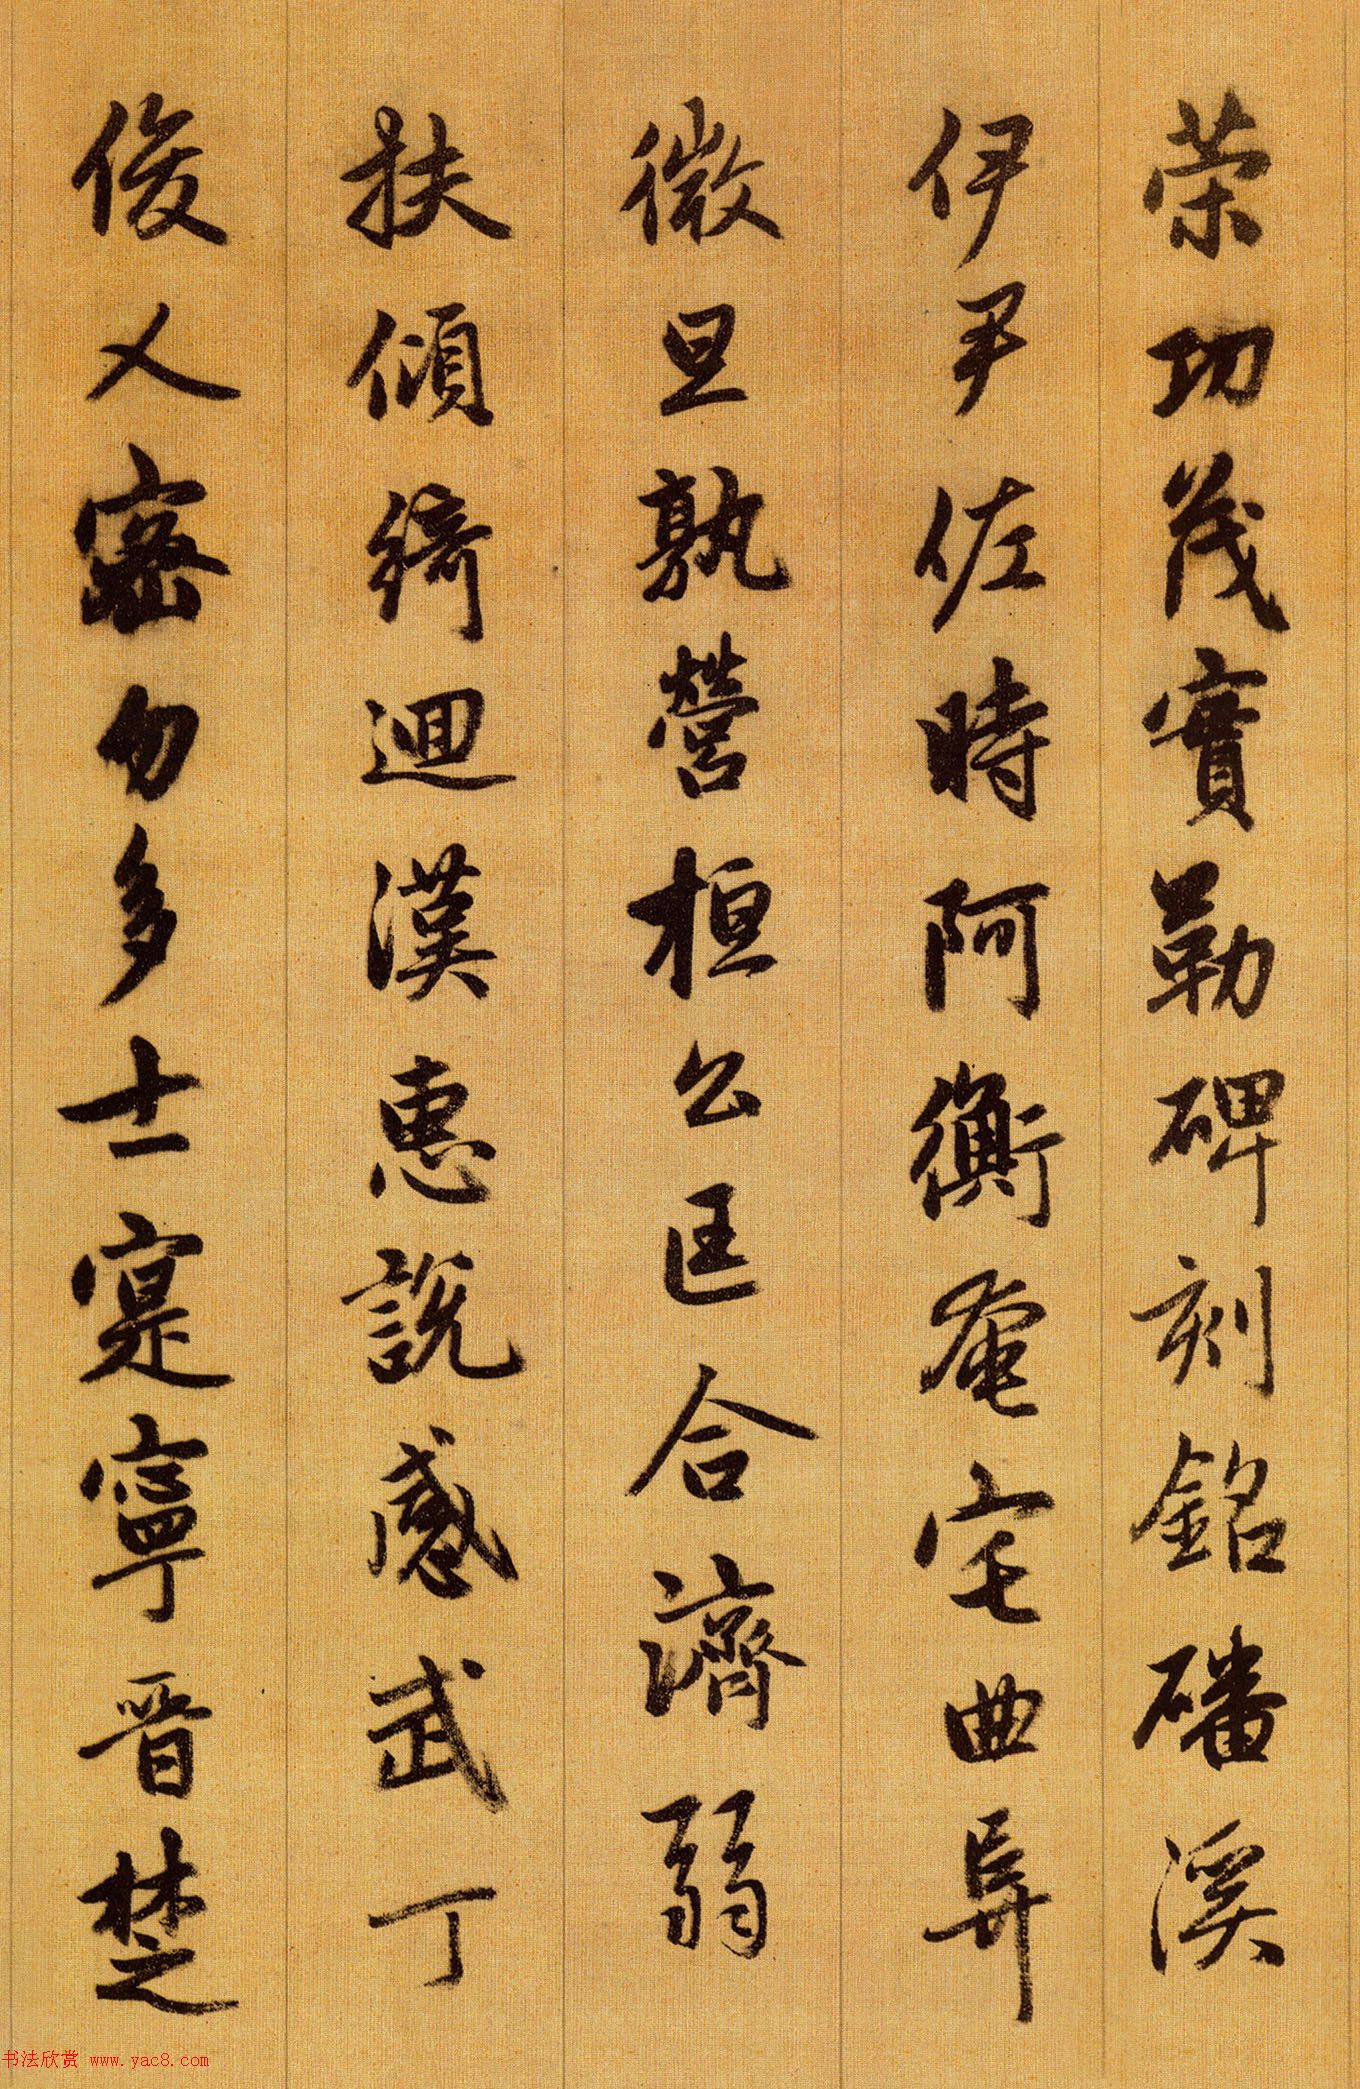 荣功茂實勒碑刻銘磻溪
伊尹佐時阿衡奄宅曲阜
微旦孰營桓公匡合濟弱
扶傾綺迴漢惠說感武丁
俊乂密勿多士寔寧晋楚
书法欣赏 www.yac8.com